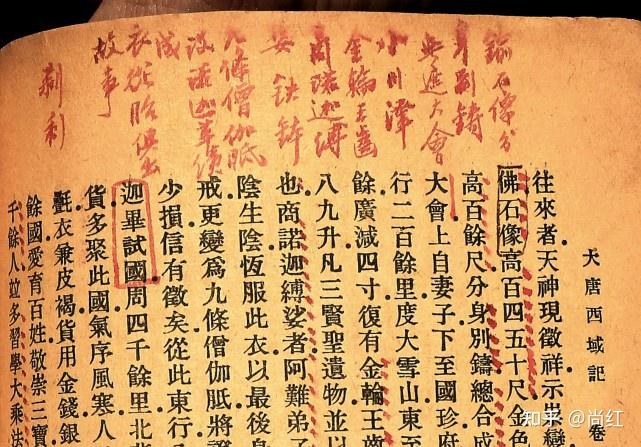 大唐西域記 卷
鍮石像分
身別鑄
無遮大會
小川澤
金輪王齒
商諾迦縛
娑 鉄鉢
九條僧伽胝
衣從胎俱出
故事
往來者天神現徵祥示祟變
佛石像高百四五十尺金色
高百餘尺分身別鑄總合成
大會上自妻子下至國珍府
行二百餘里度大雪山東至
餘廣減四寸復有金輪王齒
八九升凡三賢聖遺物並以
也商諾迦縛娑者阿難弟子
陰生陰恆服此衣以最後身
戒更變爲九條僧伽胝將證
少損信有徵矣從此東行
迦畢試國周四千餘里北
貨多聚此國氣序風寒人
氎衣兼皮褐貨用金錢銀
餘國愛育百姓敬崇三寶
千餘人竝多習學大乘法
知乎 @尚红